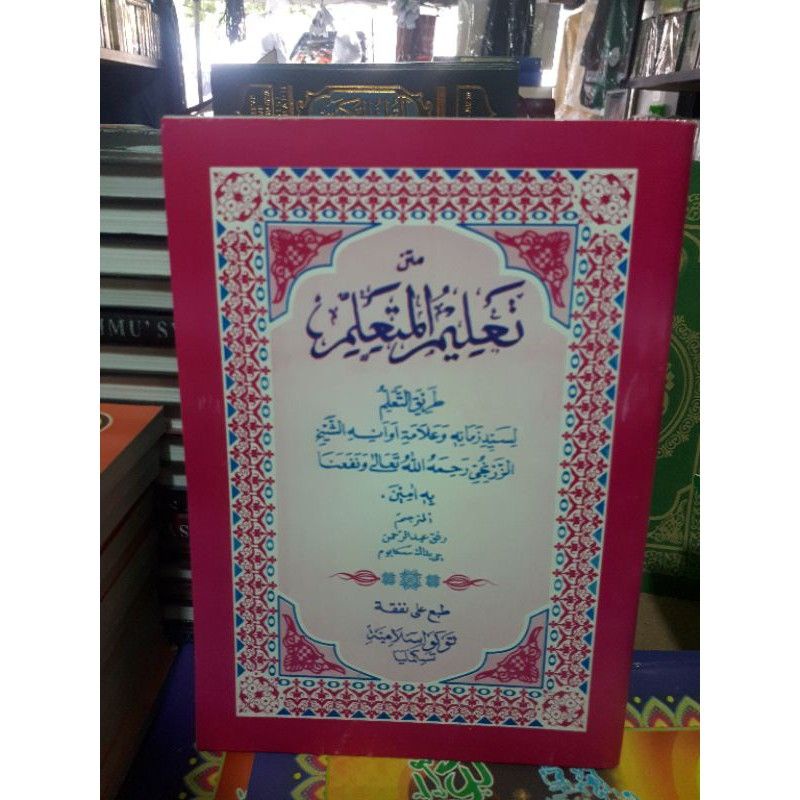 متن
تَعْلِيْمُ الْمُتَعَلِّمِ
طَرِيْقَ التَّعَلُّمِ
لِسَيِّدِ زَمَانِهِ وَعَلَامَةِ اَوَانِهِ الشَّيْخِ
الزَّرْنُجِيِّ رَحِمَهُ اللّٰهُ تَعَالٰى وَنَفَعَنَا
بِهِ اٰمِيْنَ .
المترجم
عبد الرحمن
طبع على نفقة
توكو اسلامية
MMU' S